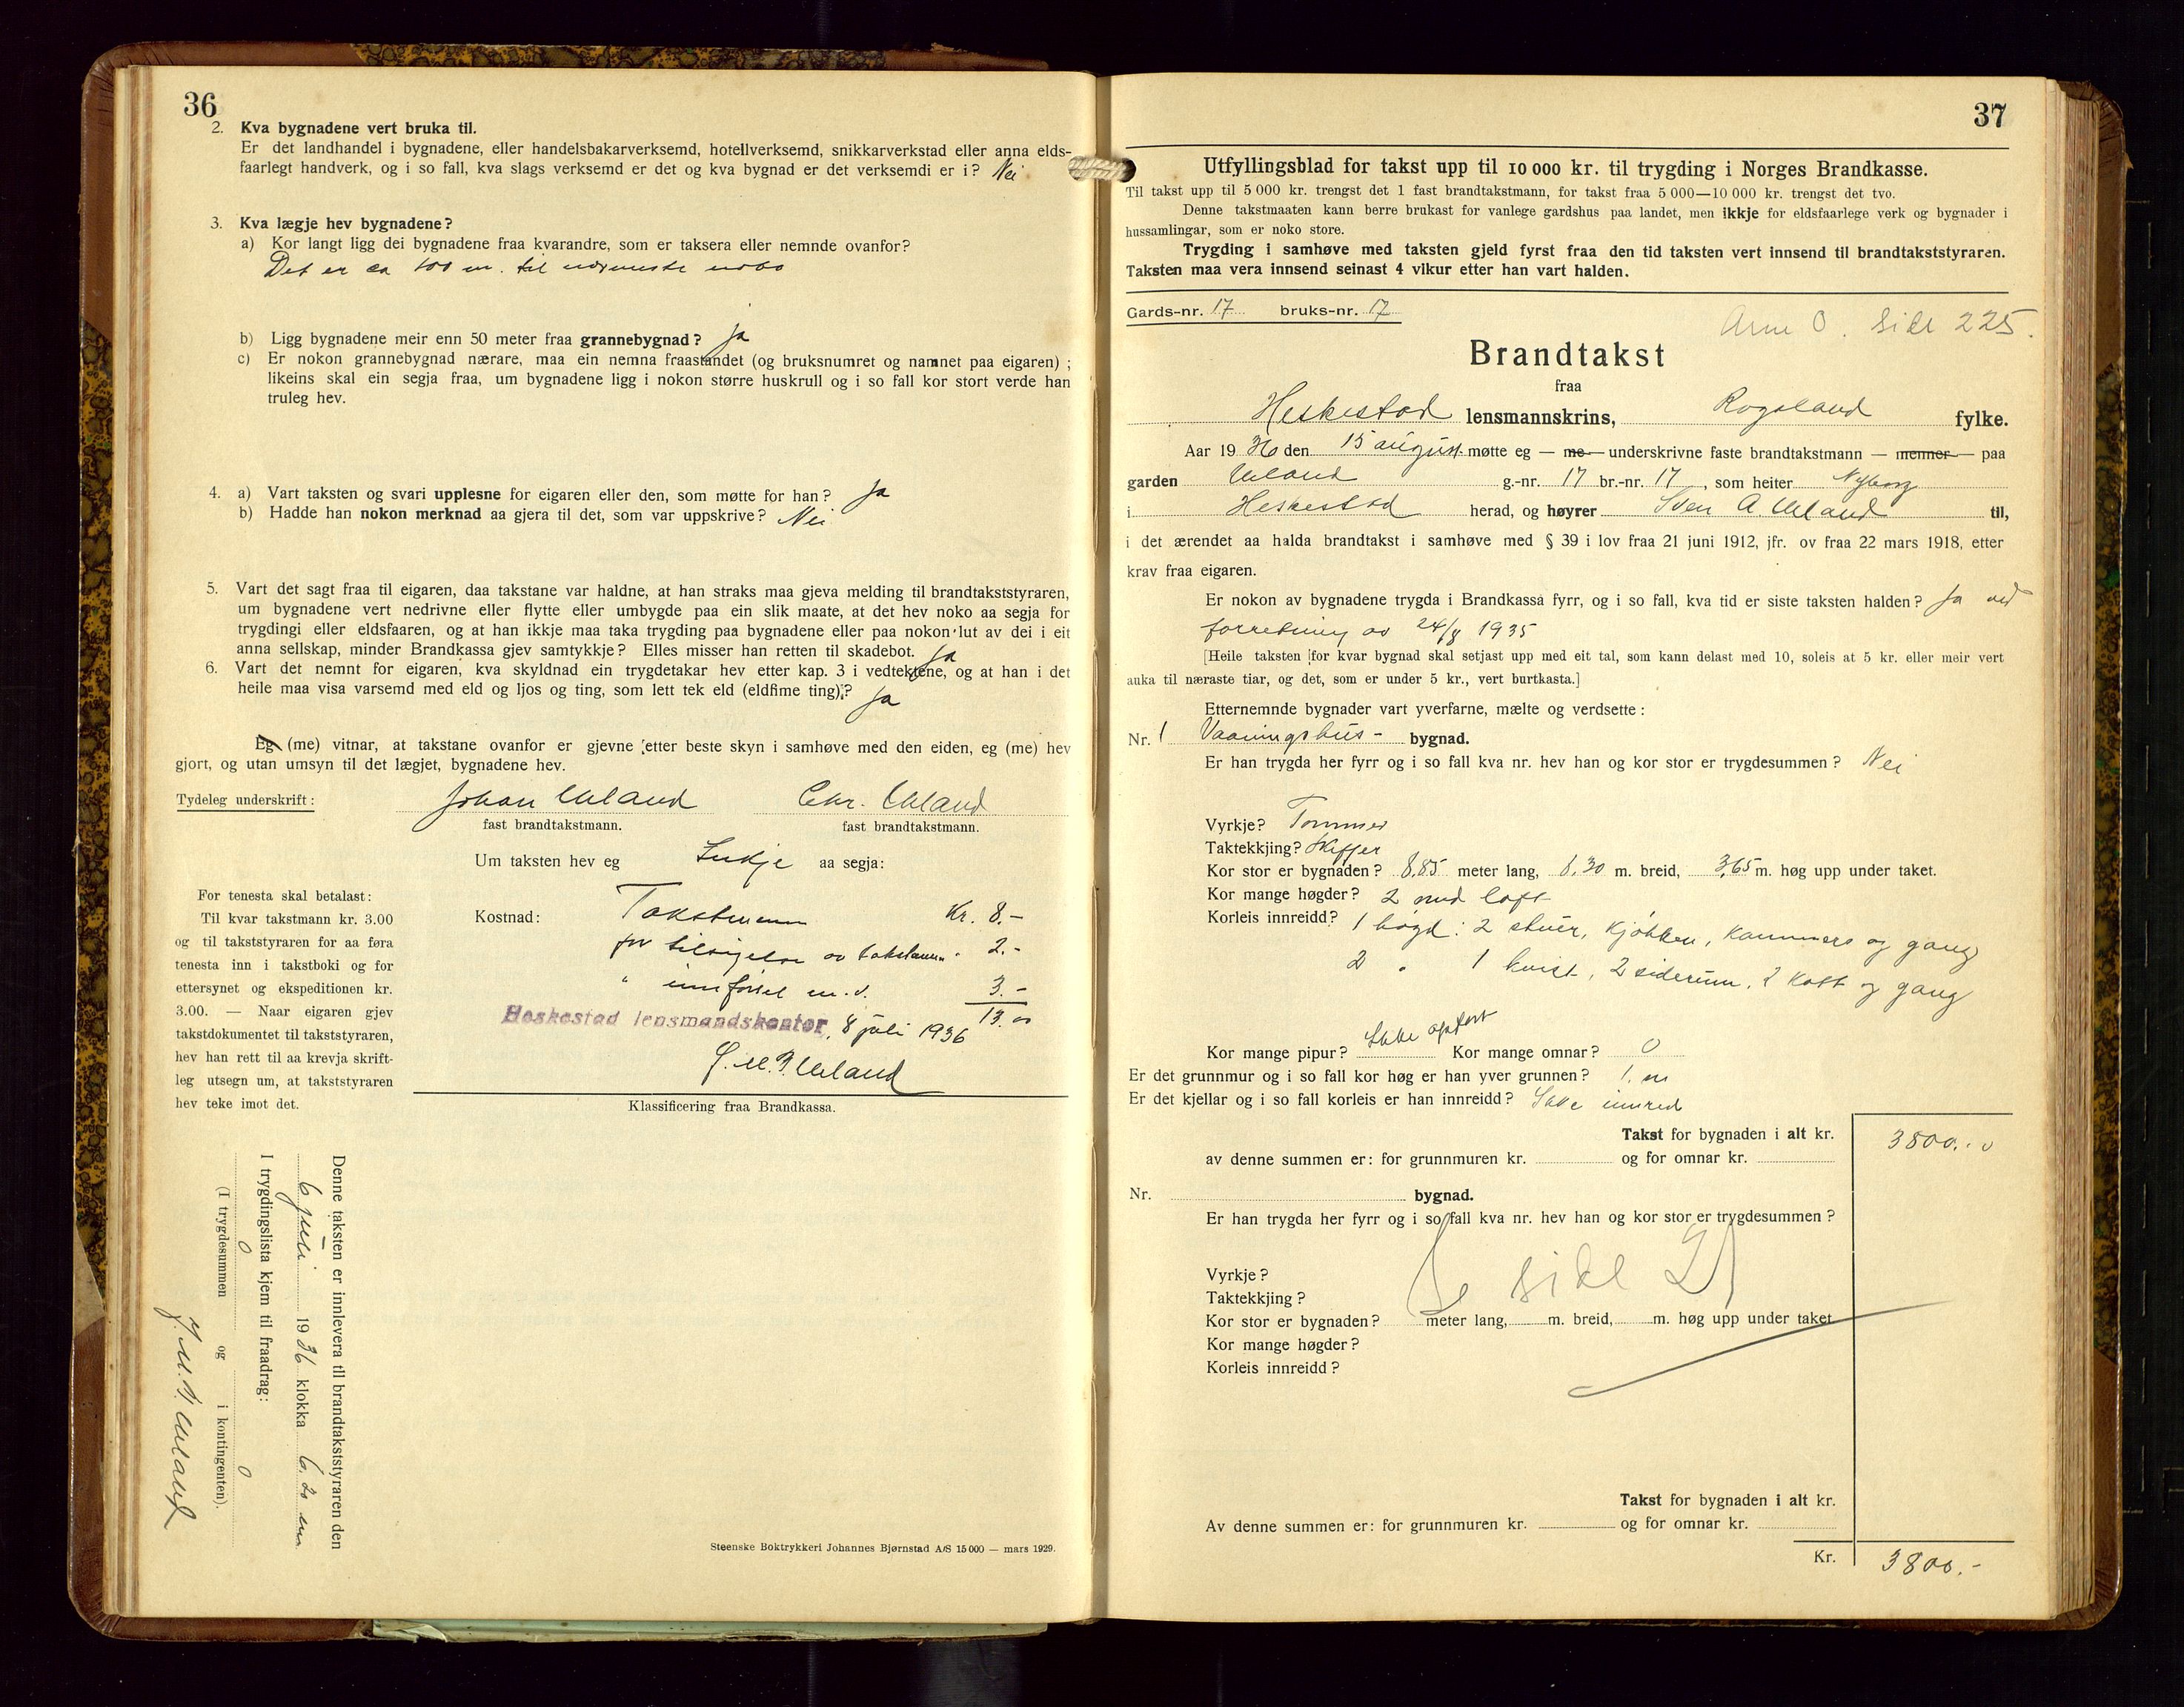 36
2. Kva bygnadene vert bruka til.
Er det landhandel i bygnadene, eller handelsbakarverksemd, hotellverksemd, snikkarverkstad eller anna elds-
faarlegt handverk, og i so fall, kva slags verksemd er det og kva bygnad er det verksemdi er i? Nei
3. Kva lægje hev bygnadene?
a) Kor langt ligg dei bygnadene fraa kvarandre, som er taksera eller nemnde ovanfor?
Det er ca 100 m. til nærmeste nabo
b) Ligg bygnadene meir enn 50 meter fraa grannebygnad? Ja
c) Er nokon grannebygnad nærare, maa ein nemna fraastandet (og bruksnumret og namnet paa eigaren) ;
likeins skal ein segja fraa, um bygnadene ligg i nokon større huskrull og i so fall kor stort verde han
truleg hev.
4. a) Vart taksten og svari upplesne for eigaren eller den, som møtte for han? Ja
b) Hadde han nokon merknad aa gjera til det, som var uppskrive? Nei
5. Vart det sagt fraa til eigaren, daa takstane var haldne, at han straks maa gjeva melding til brandtakststyraren,
um bygnadene vert nedrivne eller flytte eller umbygde paa ein slik maate, at det hev noko aa segja for
trygdingi eller eldsfaaren, og at han ikkje maa taka trygding paa bygnadene eller paa nokon lut av dei i eit
anna sellskap, minder Brandkassa gjev samtykkje? Elles misser han retten til skadebot. Ja
6. Vart det nemnt for eigaren, kva skyldnad ein trygdetakar hev etter kap. 3 i vedtektene, og at han i det
heile maa visa varsemd med eld og ljos og ting, som lett tek eld (eldfime ting)? Ja
Eg (me) vitnar, at takstane ovanfor er gjevne etter beste skyn i samhøve med den eiden, eg (me) hev
gjort, og utan umsyn til det lægjet, bygnadene hev.
Tydeleg underskrift: Johan Ueland Chr. Ueland
fast brandtakstmann. fast brandtakstmann.
Um taksten hev eg Inkje aa segja:
For tenesta skal betalast:
Til kvar takstmann kr. 3.00
og til takststyraren for aa føra
tenesta inn i takstboki og for
ettersynet og ekspeditionen kr.
3.00. — Naar eigaren gjev
takstdokumentet til takststyraren,
hev han rett til aa krevja skrift-
leg utsegn um, at takststyraren
hev teke imot det.
Kostnad: Takstmenn Kr. 8.-
for tilsigelse av takstmenn " 2.-
" innførsel m.v. 3.-
13.00
Heskestad lensmandskontor, 8 juli 1936
Ueland
Klassificering fraa Brandkassa.
Denne taksten er innlevera til brandtakststyraren den
6 juli 1936 klokka 6.20 em
I trygdingslista kjem til fraadrag:
0 0
(I trygdesummen og i kontingenten).
Ueland
Steenske Boktrykkeri Johannes Bjørnstad A/S 15 000 — mars 1929.
37
Utfyllingsblad for takst upp til 10 000 kr. til trygding i Norges Brandkasse.
Til takst upp til 5 000 kr. trengst det 1 fast brandtakstmann, for takst fraa 5 000—10 000 kr. trengst det tvo.
Denne takstmaaten kann berre brukast for vanlege gardshus paa landet, men ikkje for eldsfaarlege verk og bygnader i
hussamlingar, som er noko store.
Trygding i samhøve med taksten gjeld fyrst fraa den tid taksten vert innsend til brandtakststyraren.
Taksten maa vera innsend seinast 4 vikur etter han vart halden.
Gards-nr. 17 bruks-nr. 17
side 225.
Brandtakst
fraa
Heskestad lensmannskrins, Rogaland fylke.
Aar 1936 den 15 august møtte eg — me — underskrivne faste brandtakstmann — menner — paa
garden Ueland g.-nr. 17 br.-nr. 17, som heiter Nyborg
i Heskestad herad, og høyrer Sven A. Ueland til,
i det ærendet aa halda brandtakst i samhøve med § 39 i lov fraa 21 juni 1912, jfr. ov fraa 22 mars 1918, etter
krav fraa eigaren.
Er nokon av bygnadene trygda i Brandkassa fyrr, og i so fall, kva tid er siste taksten halden? Ja ved
forretning av 24/8 1935
[Heile taksten for kvar bygnad skal setjast upp med eit tal, som kann delast med 10, soleis at 5 kr. eller meir vert
auka til næraste tiar, og det, som er under 5 kr., vert burtkasta.]
Etternemnde bygnader vart yverfarne, mælte og verdsette:
Nr. 1 Vaaningshus- bygnad.
Er han trygda her fyrr og i so fall kva nr. hev han og kor stor er trygdesummen? Nei
Vyrkje? Tømmer
Taktekkjing? Skiffer
Kor stor er bygnaden? 8,85 meter lang, 8,30 m. breid, 3,65 m. høg upp under taket.
Kor mange høgder? 2 med loft
Korleis innreidd? 1 høgd: 2 stuer, kjøkken, kammers og gang
2 " 1 kvist, 2 siderum, 2 kott og gang
Kor mange pipur? Ikke opført Kor mange omnar? 0
Er det grunnmur og i so fall kor høg er han yver grunnen? 1. m
Er det kjellar og i so fall korleis er han innreidd? Ikke innred
Takst for bygnaden i alt kr. 3800.-
av denne summen er: for grunnmuren kr. og for omnar kr.
Nr. bygnad.
Er han trygda her fyrr og i so fall kva nr. hev han og kor stor er trygdesummen?
side 21
Vyrkje?
Taktekkjing?
Kor stor er bygnaden? meter lang, m. breid, m. høg upp under taket
Kor mange høgder?
Korleis innreidd?
Takst for bygnaden i alt kr.
Av denne summen er: for grunnmuren kr. og for omnar kr.
Kr. 3800.-